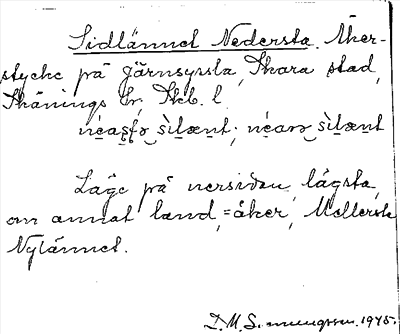 Sidlännet Nedersta. Åker-
stycke på Järnsyssla, Skara stad,
Skånings hr, Skb. l.
Läge på nersidan, lägsta,
om annat land, = åker, Mellersta
Nylännet.
1945.